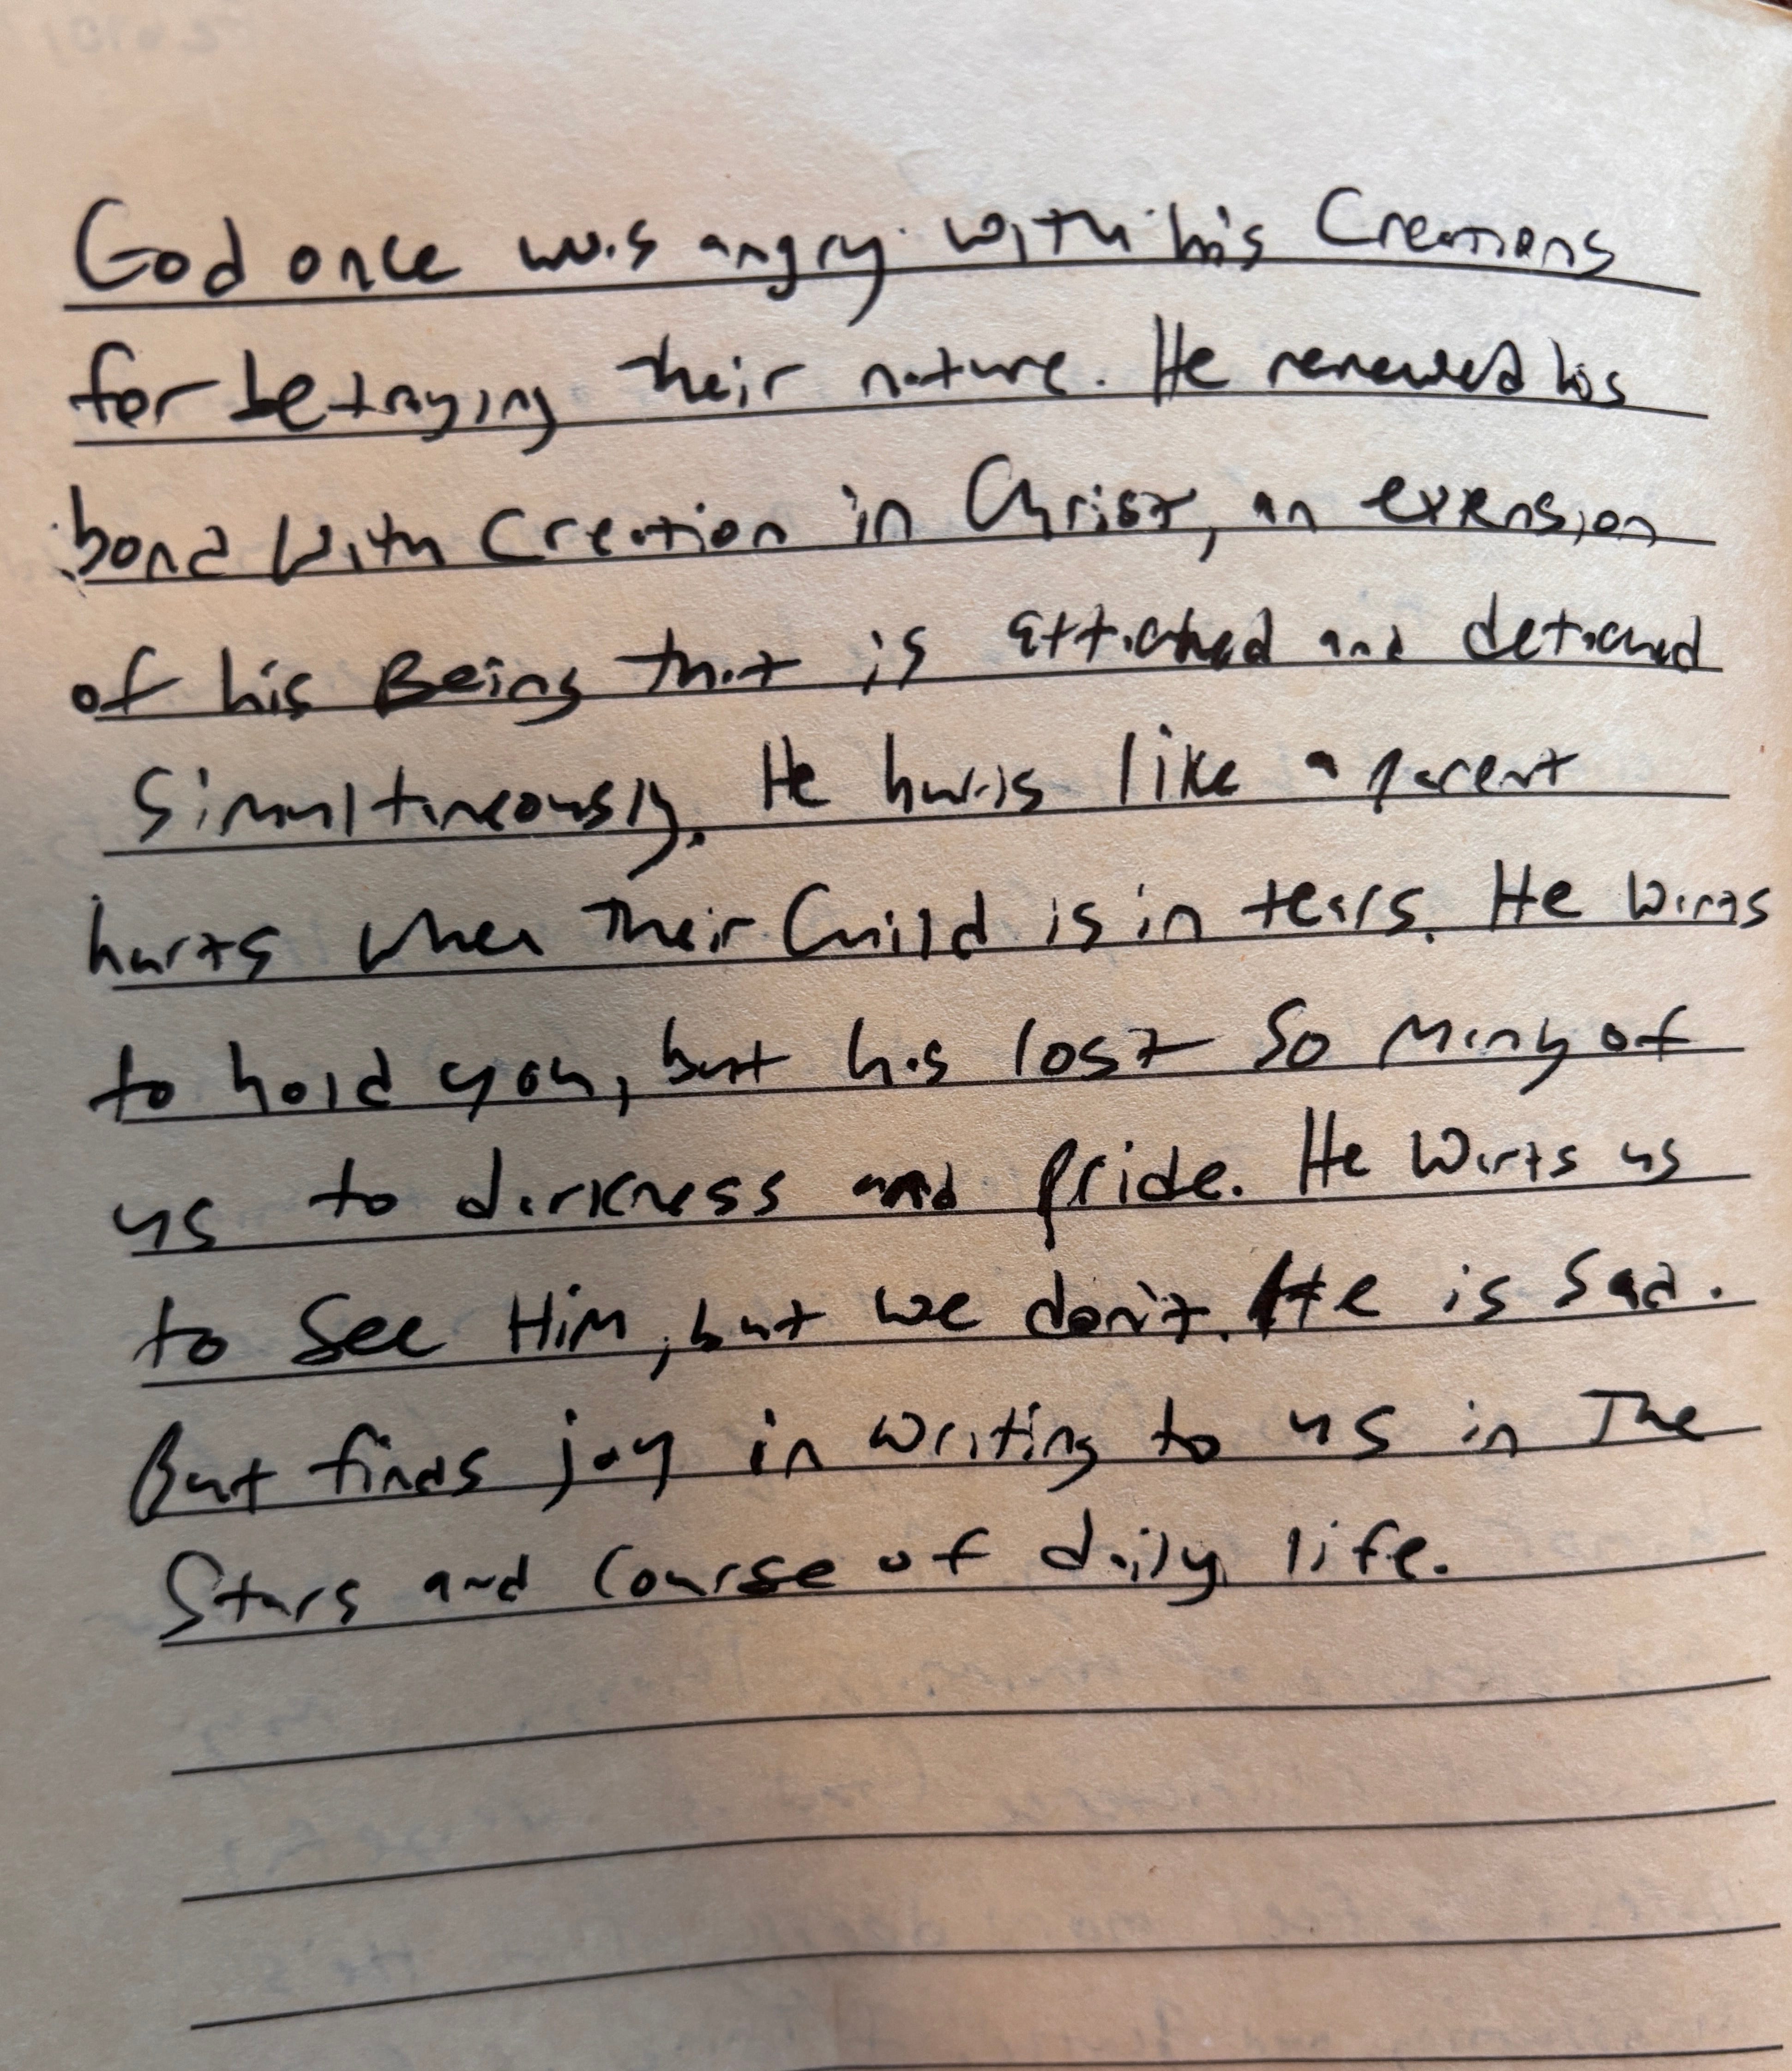 God once was angry with his Creations
for betraying their nature. He renewed his
bond with Creation in Christ, an extension
of his Being that is attached and detached
Simultaneously. He hurts like a parent
hurts when their Child is in tears. He wants
to hold you, but has lost so many of
us to darkness and pride. He wants us
to see Him, but we don't. He is sad.
But finds joy in writing to us in The
Stars and Course of daily life.